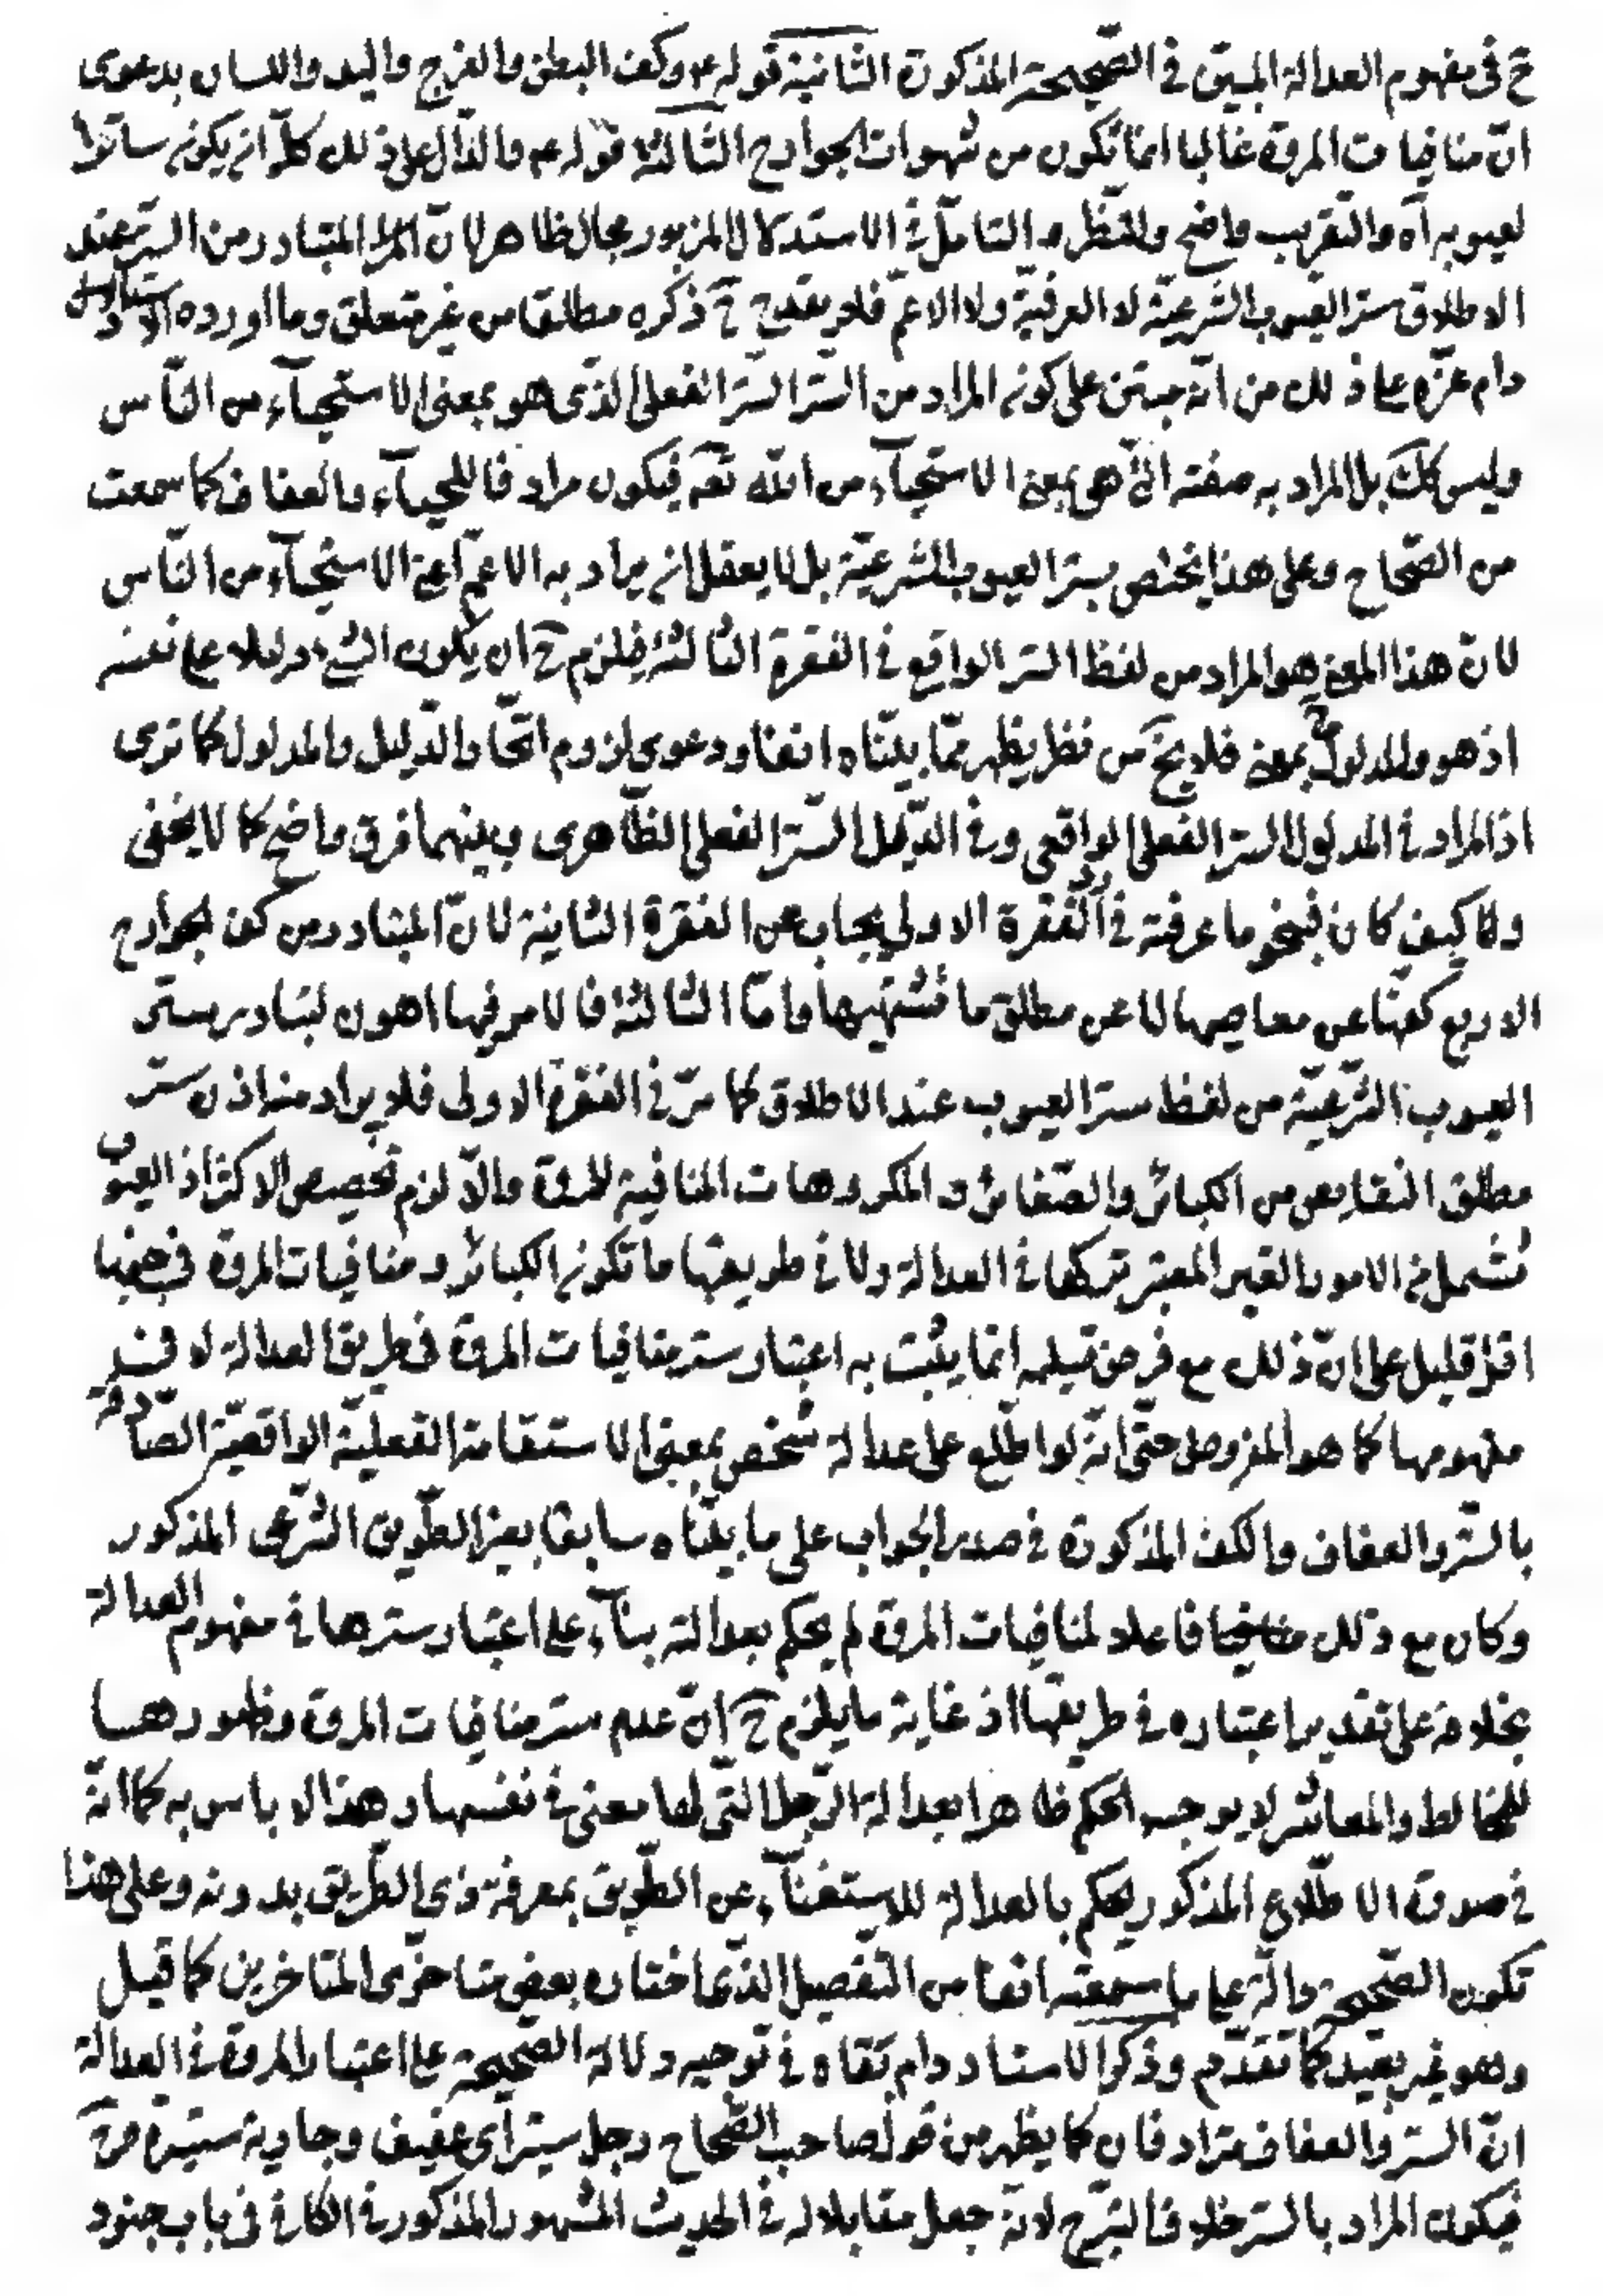 ح فى مفهوم العدالة المبيّن فى الصّحيحة المذكورة الثّانية قوله ع و كف البطن والفرج واليد واللسان بدعوى
انّ منافيات المروّة غالبا انما تكون من شهوات الجوارح الثّالثة قوله ع والدّال على ذلك كلّه ان يكون ساترا
لعيوبه آه والتّقريب واضح وللنّظر و التّامّل فى الاستدلال المزبور مجال ظاهر لانّ المتبادر من السّتر عند
الاطلاق ستر العيوب الشّرعيّة لا العرفيّة ولا الاعمّ فلا يقدح ح ذكره مطلقا من غير متعلق وما اورده الاستاد
دام عزّه على ذلك من انّه مبتن على كون المراد من السّتر السّتر الفعلى الذّى هو بمعنى الاستحيآء من النّاس
وليس كك بل المراد به صفته الّتى هى بمعنى الاستحيآء من اللّه تعه فيكون مرادفا للحيآء والعفاف كما سمعت
من الصّحاح وعلى هذا يختص بستر العيوب الشّرعيّة بل لا يعقل ان يراد به الاعمّ اعنى الاستحيآء من النّاس
لانّ هذا المعنى هو المراد من لفظ الستر الواقع فى الفقرة الثّالثة فيلزم ح ان يكون الشّىء دليلا على نفسه
اذ هو والمدلول ح بمعنى فلا يخ من نظر يظهر ممّا بيّنّاه انفا ودعوى لزوم اتّحاد الدّليل والمدلول كما ترى
اذ المراد فى المدلول الستر الفعلى الواقعى وفى الدّليل السّتر الفعلى الظّاهرى وبينهما فرق واضح كما لا يخفى
وكيف كان فبنحو ما عرفته فى الفقرة الاولى يجاب عن الفقرة الثانية لانّ المتبادر من كف الجوارح
الاربع كفّها عن معاصيها لا عن مطلق ما تشتهيها وامّا الثالثة فالامر فيها اهون لتبادر ستر
العيوب الشّرعيّة من لفظ ستر العيوب عند الاطلاق كما مرّ فى الفقرة الاولى فلا يراد منه اذن ستر
مطلق النقايص من الكبائر والصّغائر و المكروهات المنافية للمروّة والّا لزم تخصيص الاكثر اذ العيوب
تشمل الامور الغير المعتبر تركها فى العدالة ولا فى طريقها ما تكون الكبائر و منافيات المروّة فى جنبها
اقلّ قليل على انّ ذلك مع فرض تسليمه انّما يثبت به اعتبار ستر منافيات المروّة فى طريق العدالة لا فى
مفهومها كما هو المفروض حتّى انّه لو اطّلع على عدالة شخص بمعنى الاستقامة الفعليّة الواقعيّة الصّادقة
بالسّتر والعفاف والكف المذكورة فى صدر الجواب على ما بيّنّاه سابقا بغير الطّريق الشّرعى المذكور
وكان مع ذلك فاعلا لمنافيات المروّة لم يحكم بعدالته بنآء على اعتبار سترها فى مفهوم العدالة
بخلافه على تقدير اعتباره فى طريقها اذ غاية ما يلزم ح انّ عدم ستر منافيات المروّة وظهورها
للمخالط والمعاشر لا يوجب الحكم ظاهرا بعدالة الرّجل الّتى لها معنى فى نفسها و هذا لا باس به كما انّه
فى صورة الاطّلاع المذكور يحكم بالعدالة للاستغنآء عن الطّريق بمعرفة ذى الطّريق بدونه وعلى هذا
تكون الصّحيحة دالّة على ما سمعته انفا من التّفصيل الذّى اختاره بعض متاخّرى المتاخرين كما قيل
وهو غير بعيد كما تقدّم وذكر الاستاد دام بقاه فى توجيه دلالة الصّحيحة على اعتبار المروّة فى العدالة
انّ السّتر والعفاف مترادفان كما يظهر من قول صاحب الصّحاح رجل ستير اى عفيف وجارية ستيرة
فيكون المراد بالستر خلاف التبرّج لانّه جعل مقابلا له فى الحديث المشهور المذكور فى الكافى فى باب جنود